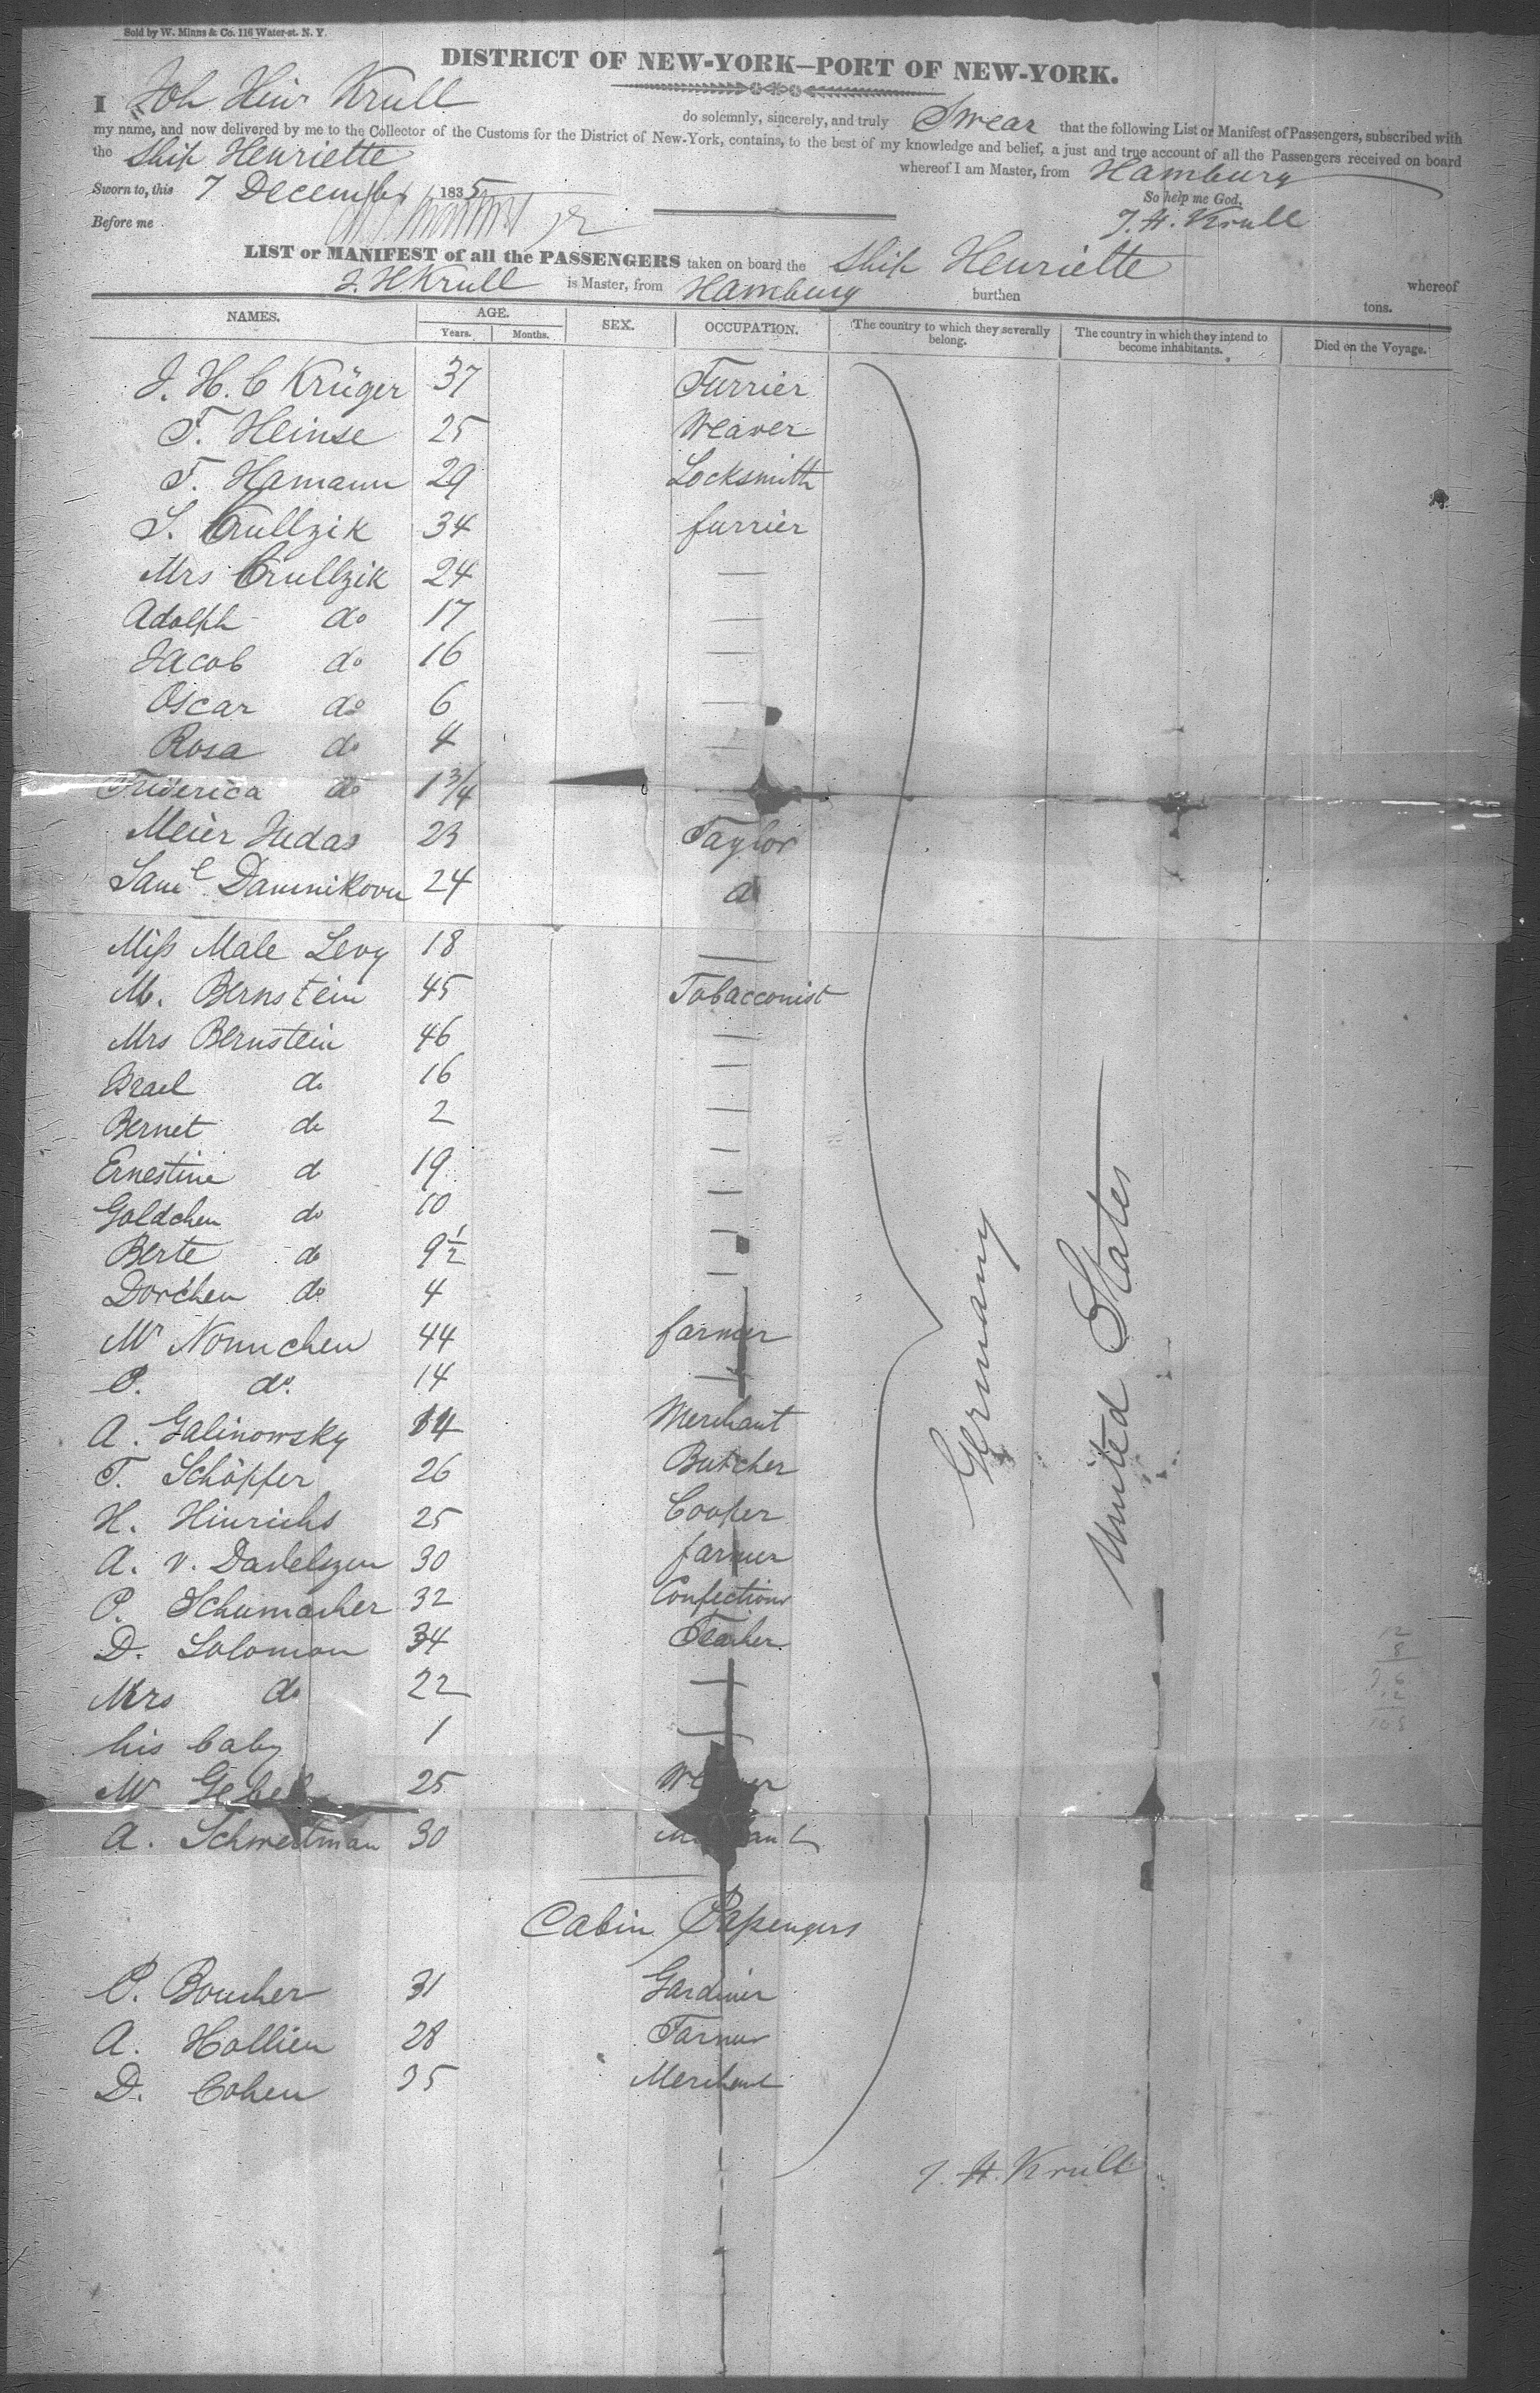 Sold by W. Minns & Co. 116 Water-st. N. Y.
DISTRICT OF NEW-YORK—PORT OF NEW-YORK.
I Joh Hinr Krull do solemnly, sincerely, and truly Swear that the following List or Manifest of Passengers, subscribed with
my name, and now delivered by me to the Collector of the Customs for the District of New-York, contains, to the best of my knowledge and belief, a just and true account of all the Passengers received on board
the Ship Henriette whereof I am Master, from Hamburg
Sworn to, this 7 December 1835 So help me God,
Before me J. H. Krull
LIST or MANIFEST of all the PASSENGERS taken on board the Ship Henriette whereof
J. H Krull is Master, from Hamburg burthen tons.
NAMES. AGE. Years. Months. SEX. OCCUPATION. The country to which they severally belong. The country in which they intend to become inhabitants. Died on the Voyage.
J. H. C Krüger 37 Furrier
F. Heinse 25 Weaver
F. Hamann 29 Locksmith
S. Crullzik 34 furrier
Mrs Crullzik 24 —
Adolph do 17 —
Jacob do 16 —
Oscar do 6 —
Rosa do 4 —
Friderica do 1 3/4
Meier Judas 23 Taylor
Saml Damnikovu 24 d
Miss Male Levy 18 —
M. Bernstein 45 Tobacconist
Mrs Bernstein 46 —
Israel do 16 —
Bernet do 2 —
Ernestine d 19 —
Goldchen do 10 —
Berte do 9 1/2 —
Dorchen do 4 —
Mr Nonnchen 44 farmer
P. do. 14 —
A. Galinowsky 14 Merchant
T. Schöpfer 26 Butcher
H. Hinrichs 25 Cooper
A. v. Dadelszen 30 farmer
P. Schumacher 32 Confectionr
D. Solomon 34 Teacher
Mrs do 22 —
his baby 1 —
Mr Gebel 25
A. Schweitman 30
Germany
United States
Cabin Passengers
P. Boucher 31 Gardiner
A. Hollien 28 Farmer
D. Cohen 35 Merchant
J. H. Krull